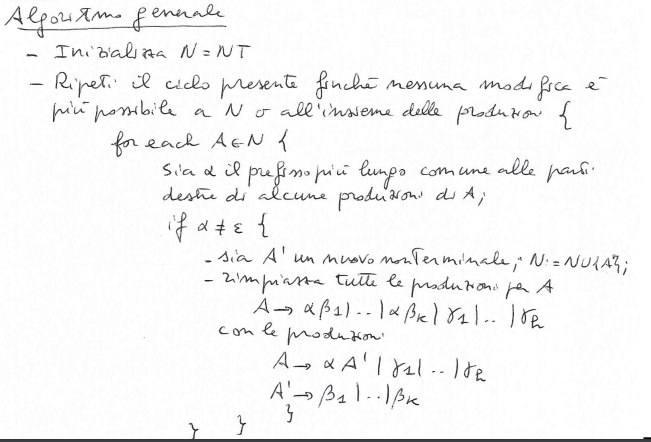 Algoritmo generale
- Inizializza N = NT
- Ripeti il ciclo presente finché nessuna modifica è
più possibile a N o all'insieme delle produzioni {
for each A ∈ N {
sia α il prefisso più lungo comune alle parti
destre di alcune produzioni di A;
if α ≠ ε {
- sia A' un nuovo nonterminale; N := N∪{A'};
- rimpiazza tutte le produzioni per A
A → αβ1|..|αβk|γ1|..|γh
con le produzioni
A → αA'|γ1|..|γh
A' → β1|..|βk
}
} }